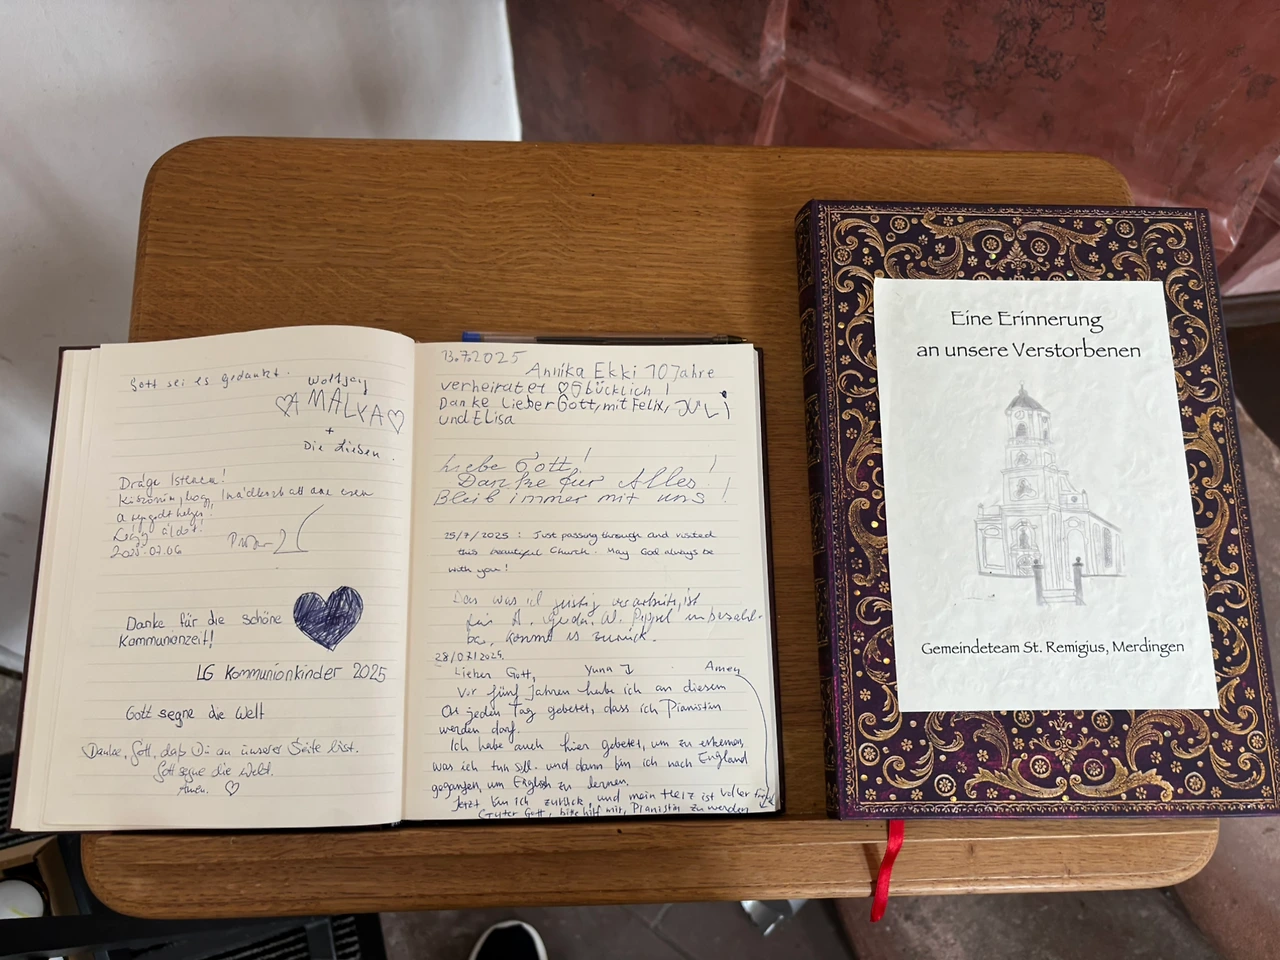 Gott sei es gedankt.
Wolfgang
AMALYA
+
Die Lieben.
Drága Istenem!
Köszönöm, hogy
a segedt helyez!
Légy áldott!
2025.07.06
Danke für die schöne
Kommunionzeit!
LG Kommunionkinder 2025
Gott segne die Welt
Danke, Gott, daß Du an unserer Seite bist.
Gott segne die Welt.
Amen.
13.7.2025
Annika Ekki 10 Jahre
verheiratet Glücklich!
Danke Lieber Gott, mit Felix, JULI
und Elisa
Liebe Gott!
Danke für Alles!
Bleib immer mit uns!
25/7/2025: Just passing through and visited
this beautiful Church. May God always be
with you!
Das was ich geistig verarbeite, ist
für A. W. unbezahl-
bar, kommt es zurück.
28/07/2025.
Lieber Gott, Yuna I Amen
Vor fünf Jahren habe ich an diesem
Ort jeden Tag gebetet, dass ich Pianistin
werden darf.
Ich habe auch hier gebetet, um zu erkennen,
was ich tun soll. und dann bin ich nach England
gegangen, um English zu lernen.
Jetzt bin ich zurück, und mein Herz ist voller
Guter Gott, bitte hilf mir, Pianistin zu werden
Eine Erinnerung
an unsere Verstorbenen
Gemeindeteam St. Remigius, Merdingen